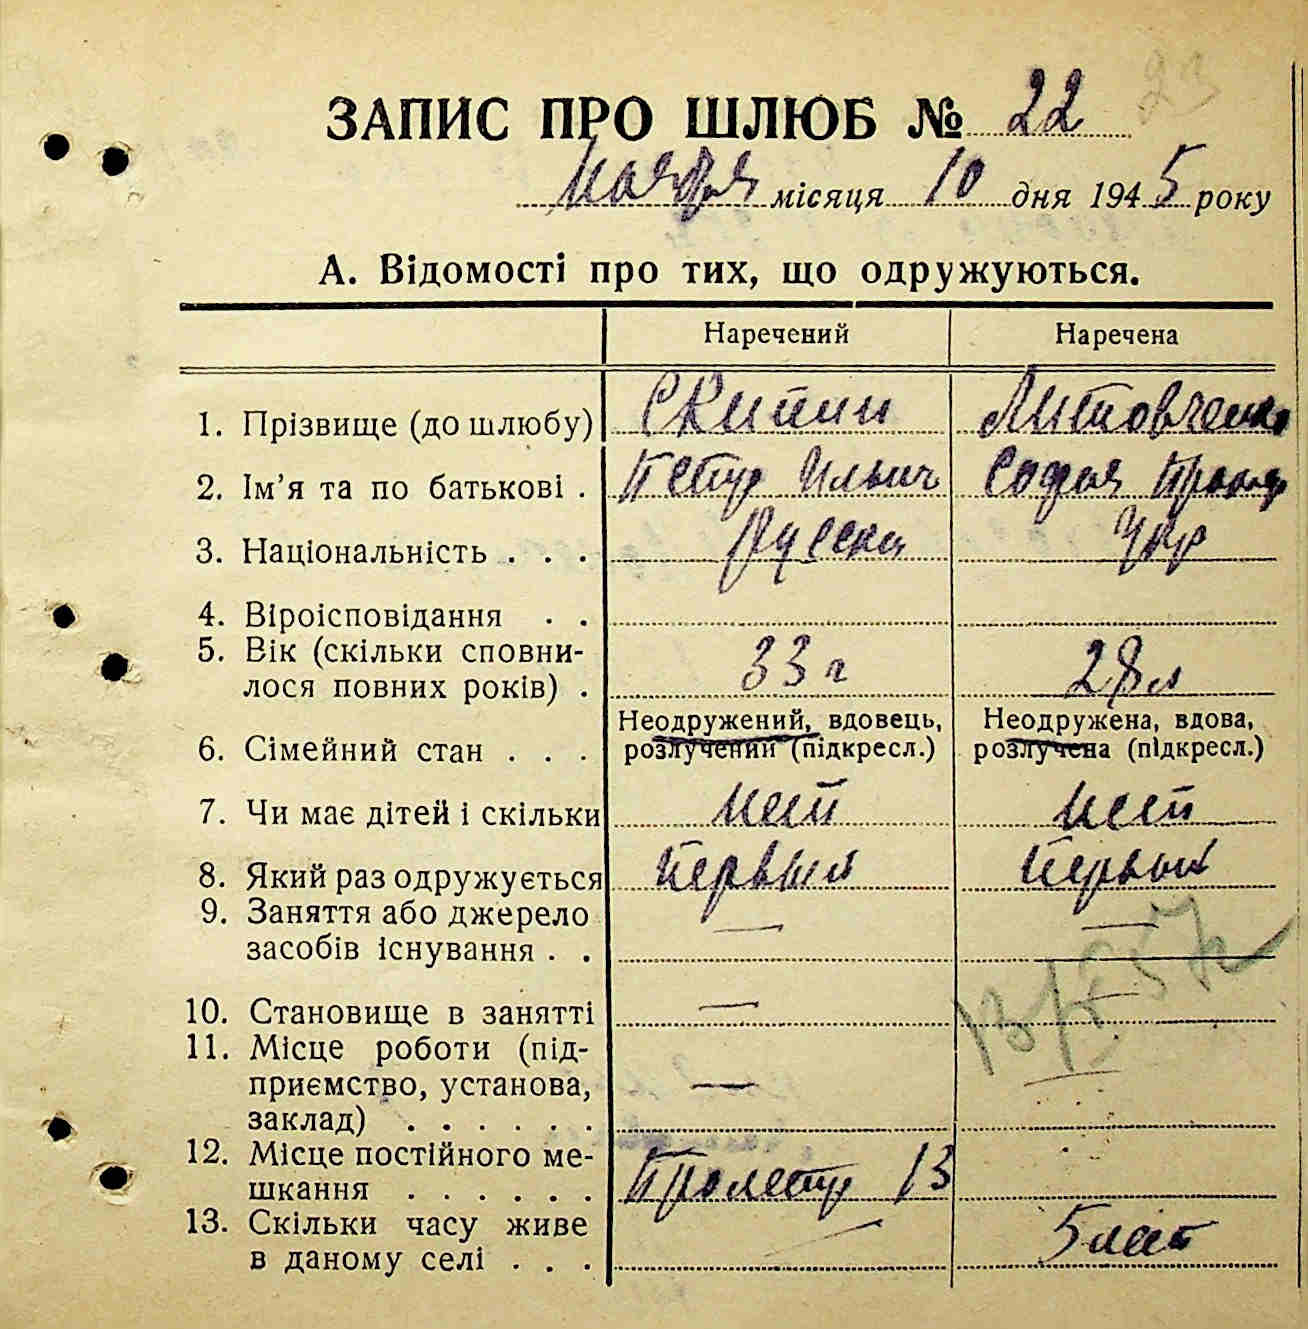 ЗАПИС ПРО ШЛЮБ № 22 23
Ноября місяця 10 дня 1945 року
А. Відомості про тих, що одружуються.
Наречений Наречена
1. Прізвище (до шлюбу) Скипин Литовченко
2. Ім’я та по батькові . Петр Ильич София
3. Національність . . . Русски Укр
4. Віроісповідання . .
5. Вік (скільки сповни-
лося повних років) . 33 г 28 л
6. Сімейний стан . . . Неодружений, вдовець, розлучений (підкресл.) Неодружена, вдова, розлучена (підкресл.)
7. Чи має дітей і скільки нет нет
8. Який раз одружується Первый Первый
9. Заняття або джерело
засобів існування . . — —
10. Становище в занятті —
11. Місце роботи (під-
приємство, установа,
заклад) . . . . . . —
12. Місце постійного ме-
шкання . . . . . . Пролетар 13
13. Скільки часу живе
в даному селі . . . — 5 лет